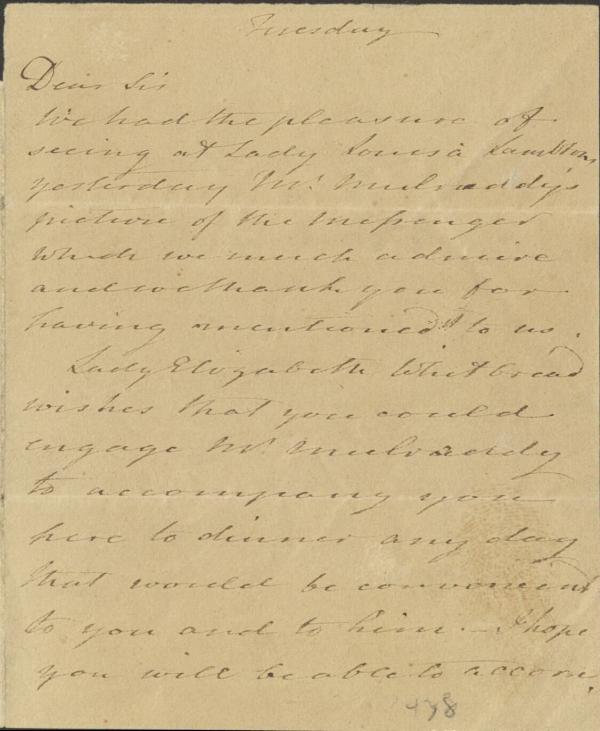 Tuesday
Dear Sir
We had the pleasure of
seeing at Lady Louisa Lambtons
yesterday Mr. Mulraddy's
picture of the Messenger
which we much admire
and we thank you for
having mentioned it to us.
Lady Elizabeth Whitbread
wishes that you could
engage Mr. Mulraddy
to accompany you
here to dinner any day
that would be convenient
to you and to him. — I hope
you will be able to accom
478